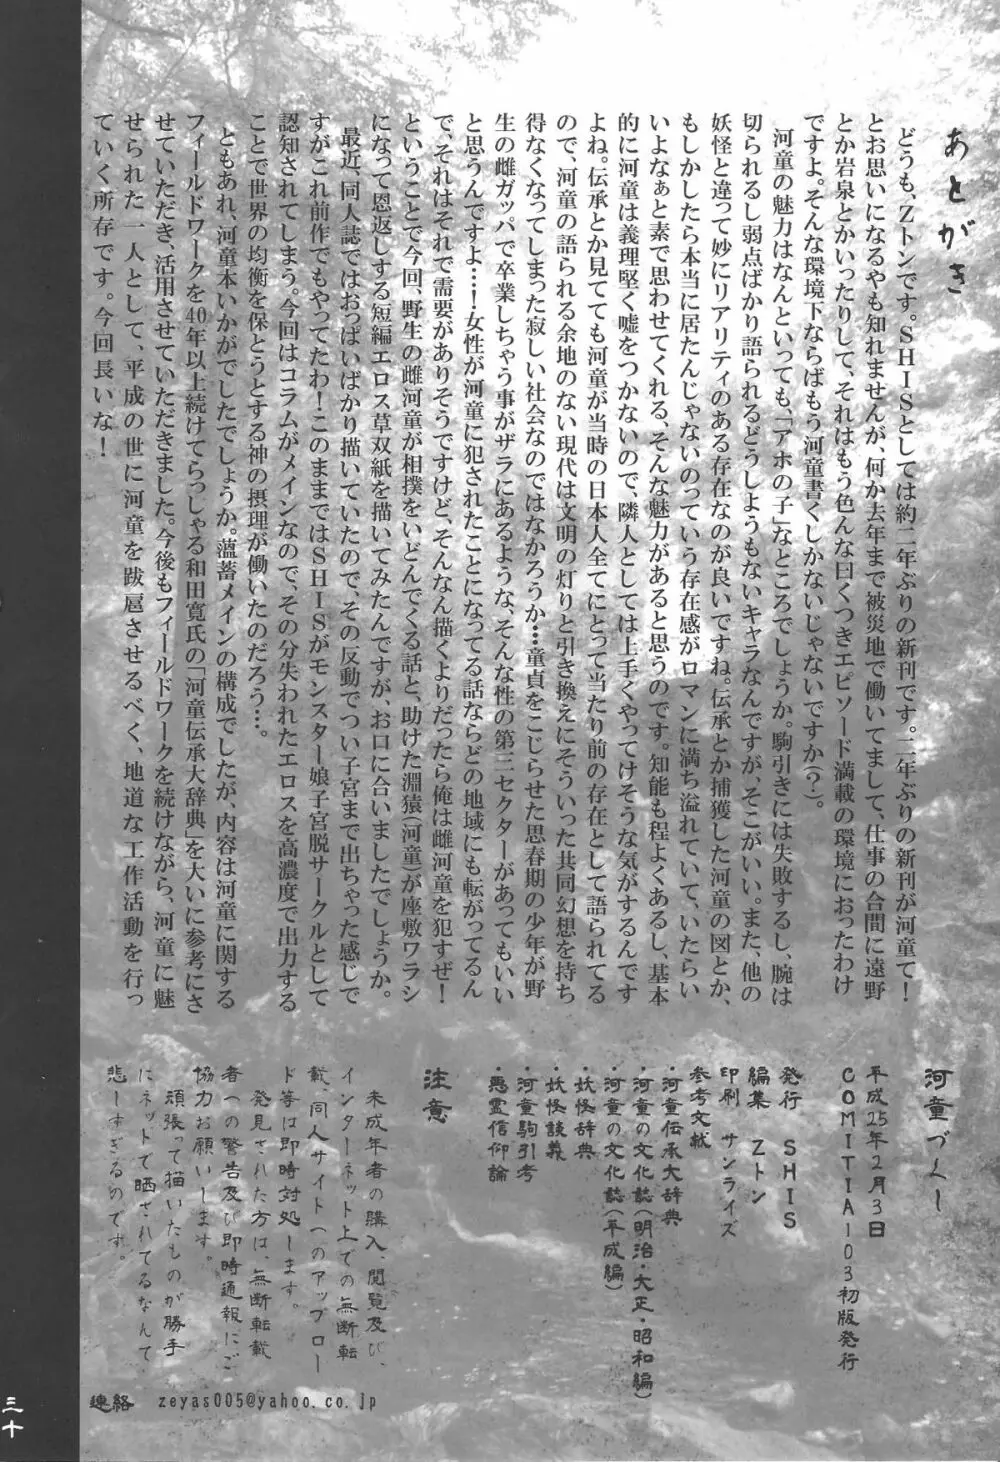 あとがき
どうも、Zトンです。SHISとしては約二年ぶりの新刊です。二年ぶりの新刊が河童て！
とお思いになるやも知れませんが、何か去年まで被災地で働いてまして、仕事の合間に遠野
とか岩泉とかいったりして、それはもう色んな曰くつきエピソード満載の環境におったわけ
ですよ。そんな環境下ならばもう河童書くしかないじゃないですか（？）。
河童の魅力はなんといっても、「アホの子」なところでしょうか。駒引きには失敗するし、腕は
切られるし弱点ばかり語られるどうしようもないキャラなんですが、そこがいい。また、他の
妖怪と違って妙にリアリティのある存在なのが良いですね。伝承とか捕獲した河童の図とか、
もしかしたら本当に居たんじゃないのっていう存在感がロマンに満ち溢れていて、いたらい
いよなぁと素で思わせてくれる、そんな魅力があると思うのです。知能も程よくあるし、基本
的に河童は義理堅く嘘をつかないので、隣人としては上手くやってけそうな気がするんです
よね。伝承とか見てても河童が当時の日本人全てにとって当たり前の存在として語られてる
ので、河童の語られる余地のない現代は文明の灯りと引き換えにそういった共同幻想を持ち
得なくなってしまった寂しい社会なのではなかろうか…童貞をこじらせた思春期の少年が野
生の雌ガッパで卒業しちゃう事がザラにあるような、そんな性の第三セクターがあってもいい
と思うんですよ…！女性が河童に犯されたことになってる話ならどの地域にも転がってるん
で、それはそれで需要がありそうですけど、そんなん描くよりだったら俺は雌河童を犯すぜ！
ということで今回、野生の雌河童が相撲をいどんでくる話と、助けた淵猿（河童）が座敷ワラシ
になって恩返しする短編エロス草双紙を描いてみたんですが、お口に合いましたでしょうか。
最近、同人誌ではおっぱいばかり描いていたので、その反動でつい子宮まで出ちゃった感じで
すがこれ前作でもやってたわ！このままではSHISがモンスター娘子宮脱サークルとして
認知されてしまう。今回はコラムがメインなので、その分失われたエロスを高濃度で出力する
ことで世界の均衡を保とうとする神の摂理が働いたのだろう…。
ともあれ、河童本いかがでしたでしょうか。薀蓄メインの構成でしたが、内容は河童に関する
フィールドワークを40年以上続けてらっしゃる和田寛氏の「河童伝承大辞典」を大いに参考にさ
せていただき、活用させていただきました。今後もフィールドワークを続けながら、河童に魅
せられた一人として、平成の世に河童を跋扈させるべく、地道な工作活動を行っ
ていく所存です。今回長いな！
河童づくし
平成25年2月3日
COMITIA103初版発行
発行　SHIS
編集　Zトン
印刷　サンライズ
参考文献
・河童伝承大辞典
・河童の文化誌（明治・大正・昭和編）
・河童の文化誌（平成編）
・妖怪辞典
・妖怪談義
・河童駒引考
・悪霊信仰論
注意
未成年者の購入、閲覧及び、
インターネット上での無断転
載、同人サイトへのアップロー
ド等は即時対処します。
発見された方は、無断転載
者への警告及び即時通報にご
協力お願いします。
頑張って描いたものが勝手
にネットで晒されてるなんて
悲しすぎるのです。
連絡　zeyas005@yahoo.co.jp
三十